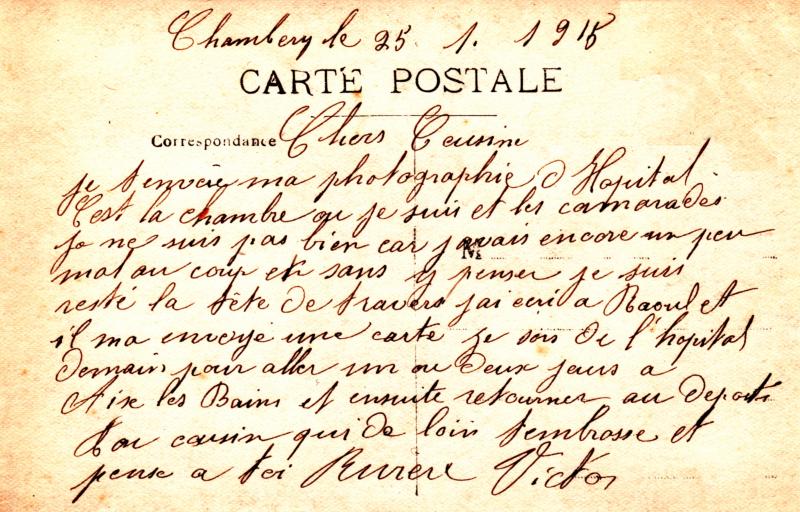 Chambery le 25. 1. 1915
CARTE POSTALE
Correspondance Chers Cousin
je t envoie ma photographie d Hopital.
C'est la chambre ou je suis et les camarades
je ne suis pas bien car javais encore un peu
mal au coup et sans y penser je suis
resté la tête de travers jai ecri a Raoul et
il ma envoyé une carte je sors de l'hopital
demain pour aller un ou deux jours a
Aix les Bains et ensuite retourner au depot
Ton cousin qui de loin t embrasse et
pense a toi Victor